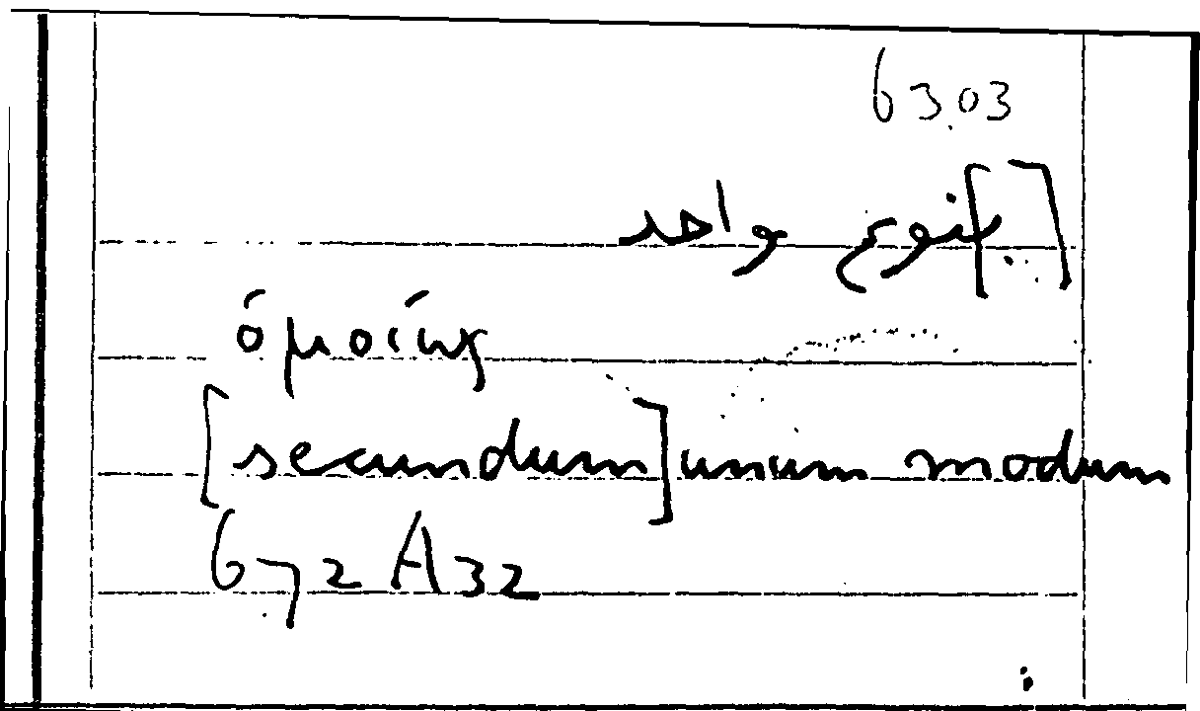 63.03
[ب]نوع واحد
ὁμοίως
[secundum] unum modum
672 A32